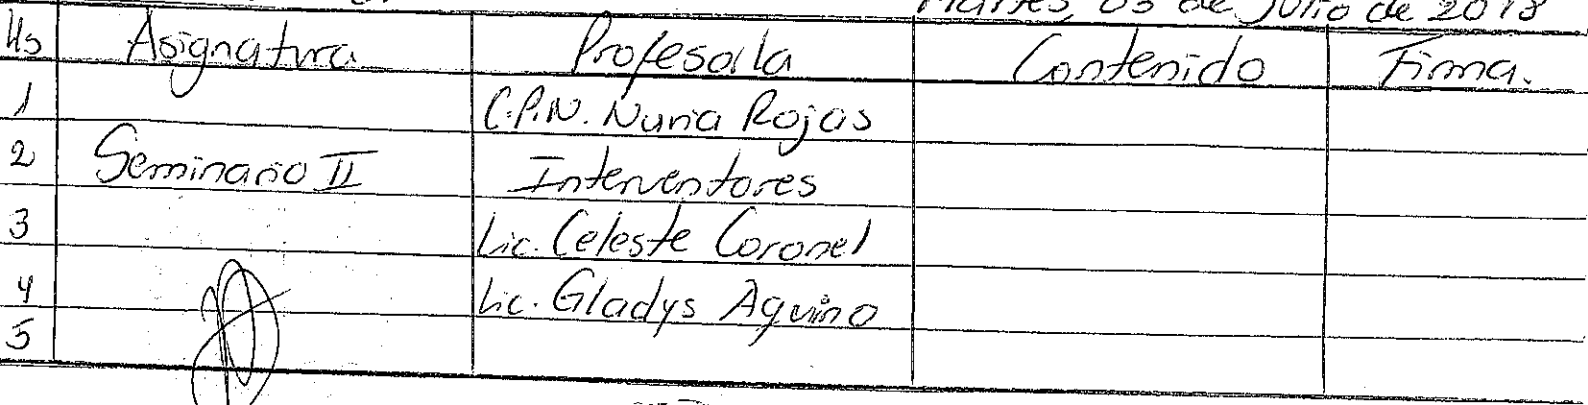 Martes, 03 de Julio de 2018
Hs Asignatura Profesor/a Contenido Firma.
1 C.P.N. Nuria Rojas
2 Seminario II Interventores
3 Lic. Celeste Coronel
4 Lic. Gladys Aquino
5